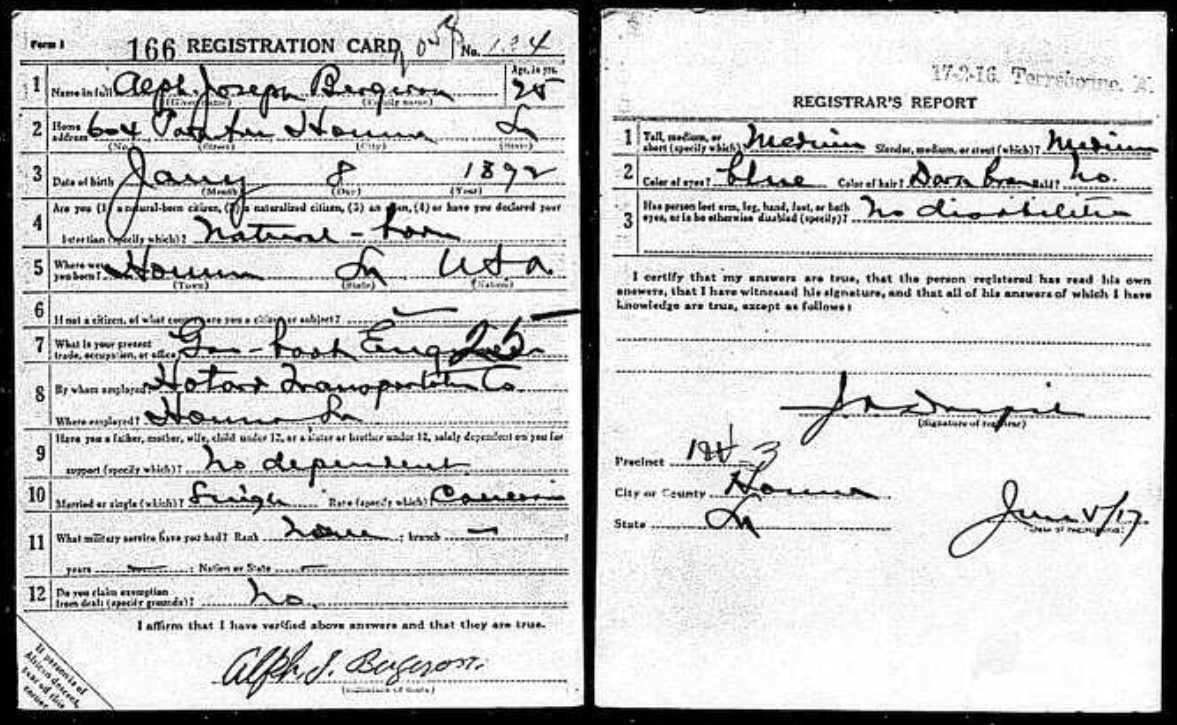 Form 1 166 REGISTRATION CARD No. 134
1 Name in full Alph Joseph Bergeron Age, in yrs. 25
(Given name) (Family name)
2 Home address 604 Houma La
(No.) (Street) (City) (State)
3 Date of birth Jany 8 1892
(Month) (Day) (Year)
4 Are you (1) a natural-born citizen, (2) a naturalized citizen, (3) an alien, (4) or have you declared your
intention (specify which)? Natural-born
5 Where were you born? Houma La USA
(Town) (State) (Nation)
6 If not a citizen, of what country are you a citizen or subject? —
7 What is your present trade, occupation, or office? Gas-boat Eng
8 By whom employed? Transportation Co
Where employed? Houma La
9 Have you a father, mother, wife, child under 12, or a sister or brother under 12, solely dependent on you for
support (specify which)? No dependent
10 Married or single (which)? Single Race (specify which)? Caucasian
11 What military service have you had? Rank none ; branch —
years — ; Nation or State —
12 Do you claim exemption from draft (specify grounds)? No.
I affirm that I have verified above answers and that they are true.
Alph. J. Bergeron.
If person is of African descent, tear off this corner
17-2-16. Terrebonne. A.
REGISTRAR'S REPORT
1 Tall, medium, or short (specify which)? Medium Slender, medium, or stout (which)? Medium
2 Color of eyes? blue Color of hair? Dark Brn Bald? No.
3 Has person lost arm, leg, hand, foot, or both eyes, or is he otherwise disabled (specify)? No disabilities
I certify that my answers are true, that the person registered has read his own
answers, that I have witnessed his signature, and that all of his answers of which I have
knowledge are true, except as follows:
(Signature of registrar)
Precinct 3
City or County Houma
State La
June 5/17
(Date of registration)